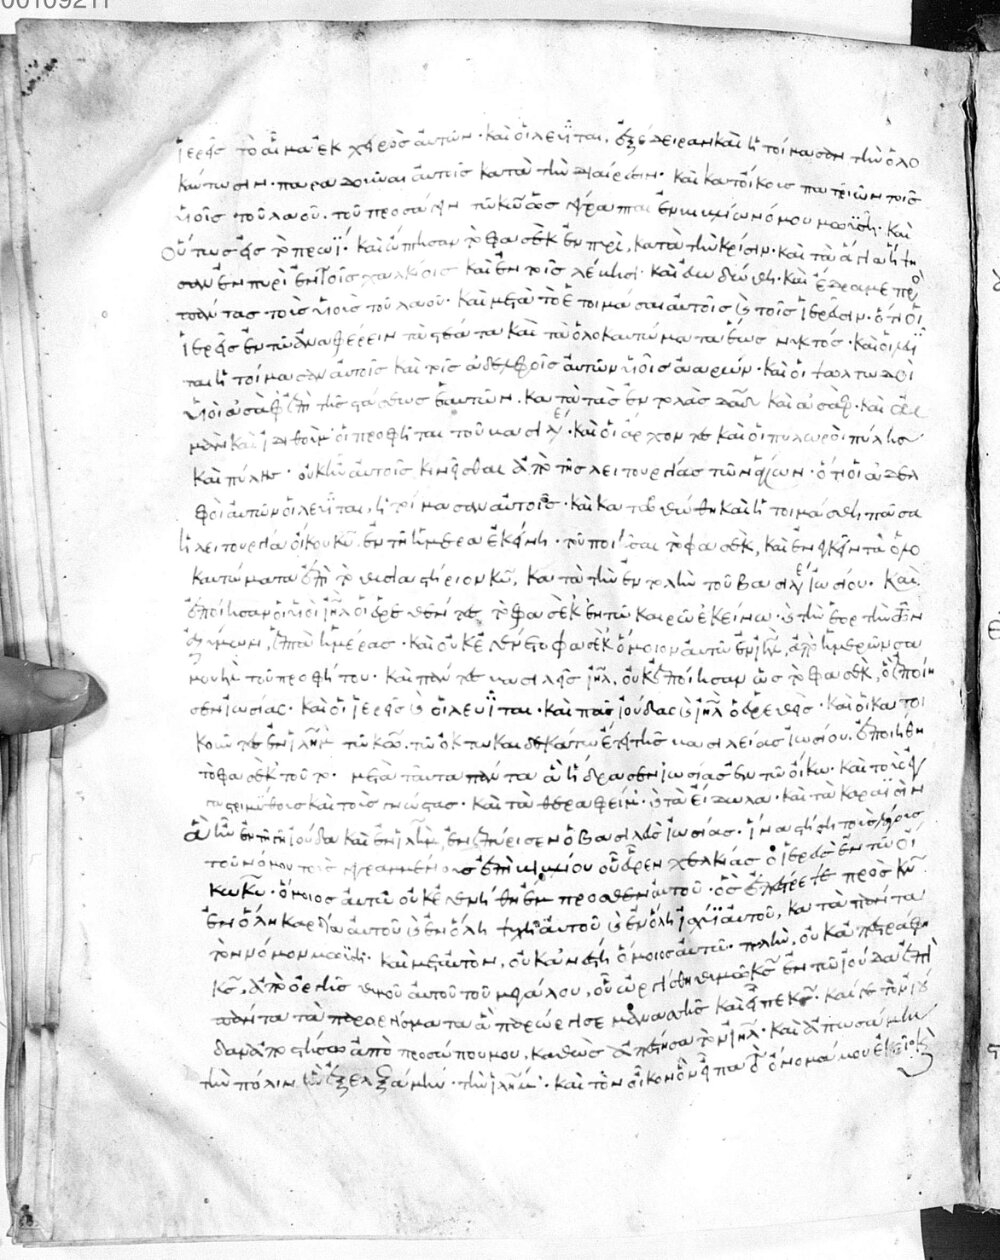 ἱερεῖς τὸ αἷμα ἐκ χειρὸς αὐτῶν· καὶ οἱ λευῖται, ἐξέδειραν καὶ ἡτοίμασαν τὴν ὁλο
καύτωσιν· παραδοῦναι αὐτοῖς κατὰ τὴν διαίρεσιν· καὶ κατ οἴκους πατριῶν τοῖς
υἱοῖς τοῦ λαοῦ· τοῦ προσάγειν τῶ κω ὡς γέγραπται ἐν νόμου μωϋσῆ· καὶ
οὕτως εἰς τὸ πρωΐ· καὶ ὤπτησαν τὸ φασὲκ ἐν πυρὶ, κατὰ τὴν κρίσιν· καὶ τὰ ἅγια ἥψη
σαν ἐν πυρὶ ἐν τοῖς χαλκείοις καὶ ἐν τοῖς λέβησι· καὶ εὐωδώθη· καὶ ἔδραμε πρὸ
πάντας τοὺς υἱοὺς τοῦ λαοῦ· καὶ μετὰ τὸ ἑτοιμάσαι αὐτοῖς καὶ τοῖς ἱερεῦσιν· ὅτι οἱ
ἱερεῖς ἐν τῶ ἀναφέρειν τὰ στέατα καὶ τὰ ὁλοκαυτώματα ἕως νυκτός· καὶ οἱ λευῖ
ται ἡτοίμασαν αὐτοῖς καὶ τοῖς ἀδελφοῖς αὐτῶν υἱοῖς ἀαρών· καὶ οἱ ψαλτωδοὶ
υἱοὶ ἀσὰφ ἐπὶ τῆς στάσεως αὐτῶν· κατὰ τὰς ἐντολὰς δαδ καὶ ἀσάφ· καὶ
μὰν καὶ οἱ προφῆται τοῦ βασιλέως· καὶ οἱ ἄρχοντες καὶ οἱ πυλωροὶ πύλης
καὶ πύλης· οὐκ ἦν αὐτοῖς κινεῖσθαι ἀπὸ τῆς λειτουργίας τῶν ἁγίων· ὅτι οἱ ἀδελ
φοὶ αὐτῶν οἱ λευῖται, ἡτοίμασαν αὐτοῖς· καὶ κατευθύνθη καὶ ἡτοιμάσθη πᾶσα
ἡ λειτουργία οἴκου κυ ἐν τῆ ἡμέρα ἐκείνη· τοῦ ποιῆσαι τὸ φασὲκ, καὶ ἐνεγκεῖν τὰ ὁλο
καυτώματα ἐπὶ τὸ θυσιαστήριον κυ, κατὰ τὴν ἐντολὴν τοῦ βασιλέως ἰωσίου· καὶ
ἐποίησαν οἱ υἱοὶ ιηλ οἱ εὑρεθέντες τὸ φασὲκ ἐν τῶ καιρῶ ἐκείνω· καὶ τὴν ἑορτὴν τῶν
ἀζύμων, ἑπτὰ ἡμέρας· καὶ οὐκ ἐγένετο φασὲκ ὅμοιον αὐτῶ ἐν ιηλ, ἀπὸ ἡμερῶν σα
μουὴλ τοῦ προφήτου· καὶ πάντες βασιλεῖς ιηλ, οὐκ ἐποίησαν ὡς τὸ φασὲκ, ὃ ἐποίη
σεν ἰωσίας· καὶ οἱ ἱερεῖς καὶ οἱ λευῖται· καὶ πᾶς ἰούδας καὶ ιηλ ὁ εὑρεθείς· καὶ οἱ κατοι
κοῦντες ἐν ιλημ τῶ κω· τῶ ὀκτωκαιδεκάτω ἔτει τῆς βασιλείας ἰωσίου· ἐποιήθη
τὸ φασὲκ τοῦτο· μετὰ ταῦτα πάντα ἃ ἥδρασεν ἰωσίας ἐν τῶ οἴκω· καὶ τοὺς
ἐγγαστριμύθους καὶ τοὺς γνώστας· καὶ τὰ θεραφεὶμ· καὶ τὰ εἴδωλα· καὶ τὰ καραϊσὶν
ἃ ἦν ἐν τῆ ἰούδα καὶ ἐν ιλημ, ἐνεπύρισεν ὁ βασιλεὺς ἰωσίας· ἵνα στήση τοὺς λόγους
τοῦ νόμου τοὺς γεγραμμένους ἐπὶ βιβλίου οὗ εὗρεν χελκίας ὁ ἱερεὺς ἐν τῶ οἴ
κω κυ· ὅμοιος αὐτῶ οὐκ ἐγενήθη ἔμπροσθεν αὐτοῦ· ὃς ἐπέστρεψε πρὸς κν
ἐν ὅλη καρδία αὐτοῦ καὶ ἐν ὅλη ψυχῆ αὐτοῦ καὶ ἐν ὅλη ἰσχύϊ αὐτοῦ, κατὰ πάντα
τὸν νόμον μωϋσῆ· καὶ μετ αὐτὸν, οὐκ ἀνέστη ὅμοιος αὐτῶ· πλὴν, οὐκ ἀπεστράφη
κς, ἀπὸ ὀργῆς θυμοῦ αὐτοῦ τοῦ μεγάλου, οὗ ὠργίσθη θυμῶ κς ἐν τῶ ἰούδα ἐπὶ
πάντα τὰ παροργίσματα ἃ παρώργισε μανασσῆς καὶ εἶπε κς· καί γε τὸν ἰού
δαν ἀποστήσω ἀπὸ προσώπου μου, καθὼς ἀπέστησα τὸν ιηλ· καὶ ἀπωσάμην
τὴν πόλιν ἣν ἐξελεξάμην· τὴν ιλημ· καὶ τὸν οἶκον ὃν εἶπα ἔσται ὄνομά μου ἐκεῖ